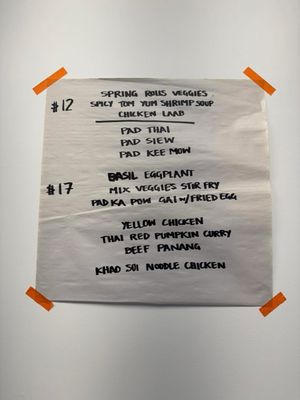 SPRING ROLLS VEGGIES
#12 SPICY TOM YUM SHRIMP SOUP
CHICKEN LAAB
PAD THAI
PAD SIEW
PAD KEE MOW
BASIL EGGPLANT
#17 MIX VEGGIES STIR FRY
PAD KA POW GAI w/ FRIED EGG
YELLOW CHICKEN
THAI RED PUMPKIN CURRY
BEEF PANANG
KHAO SOI NOODLE CHICKEN